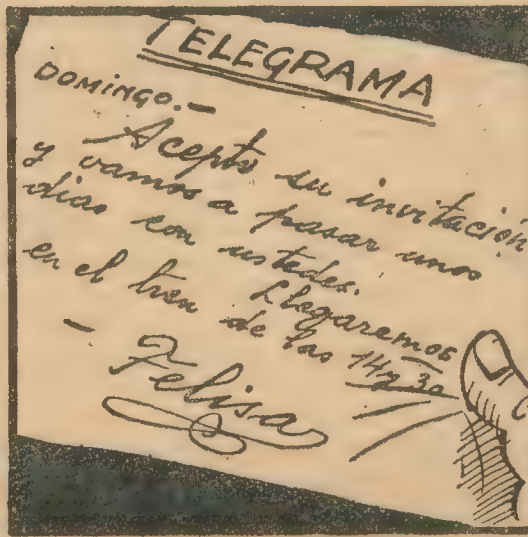 TELEGRAMA
DOMINGO.—
Acepto su invitación
y vamos a pasar unos
dias con ustedes.
Llegaremos
en el tren de las 14 y 30
— Felisa